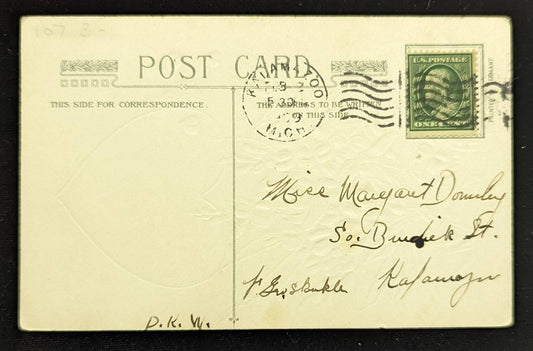 107 3-
POST CARD
THIS SIDE FOR CORRESPONDENCE.
THE ADDRESS TO BE WRITTEN
ON THIS SIDE
KALAMAZOO
FEB
5 30 PM
1909
MICH.
U.S. POSTAGE
ONE CENT
Miss Margaret
So. Burdick St.
Kalamazoo
D. K. W.